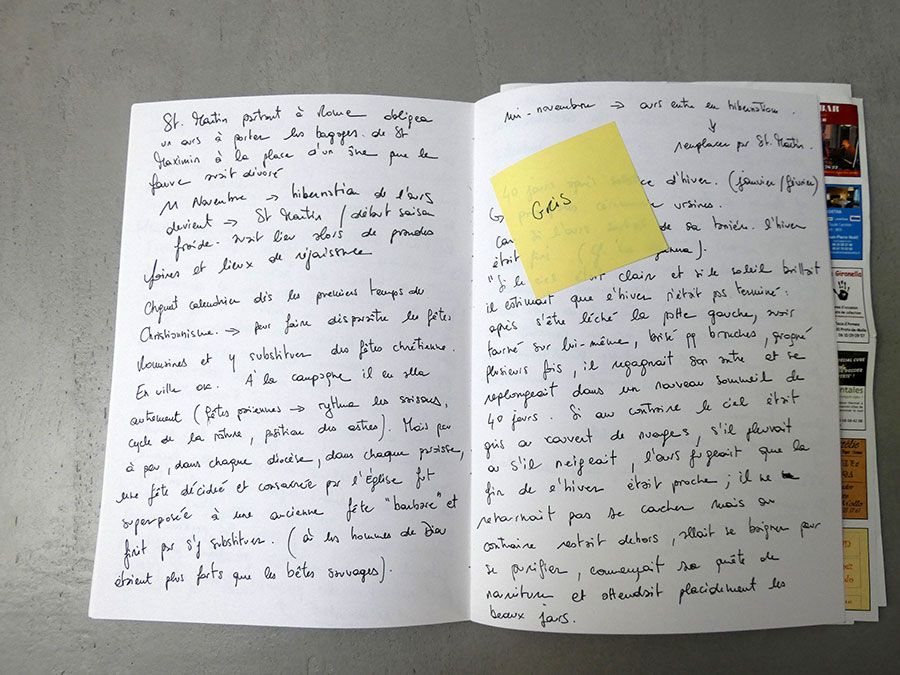 St. Martin partant à Rome obligea
un ours à porter les bagages de St
Maximin à la place d'un âne que le
fauve avait dévoré
11 Novembre → hibernation de l'ours
devient → St Martin / début saison
froide. avait lieu alors de grandes
foires et lieux de réjouissance
Chgmt calendrier dès les premiers temps du
Christianisme → pour faire disparaître les fêtes
Romaines et y substituer des fêtes chrétienne.
En ville ok. À la campagne il en alla
autrement (fêtes païennes → rythme les saisons,
cycle de la nature, position des astres). Mais peu
à peu, dans chaque diocèse, dans chaque paroisse,
une fête décidée et consacrée par l'Église fut
superposée à une ancienne fête "barbare" et
finit par s'y substituer. (là les hommes de Dieu
étaient plus forts que les bêtes sauvages).
mi-novembre → ours entre en hibernation.
↓
remplacer par St. Martin.
40 jours après solstice d'hiver. (janvier/février)
GRIS
ursines.
Si l'ours sortait de sa tanière. l'hiver
était pas
"Si le ciel était clair et si le soleil brillait
il estimait que l'hiver n'était pas terminé:
après s'être léché la patte gauche, avoir
tourné sur lui-même, brisé qq branches, grogné
plusieurs fois, il regagnait son antre et se
replongeait dans un nouveau sommeil de
40 jours. Si au contraire le ciel était
gris ou couvert de nuages, s'il pleuvait
ou s'il neigeait, l'ours jugeait que la
fin de l'hiver était proche; il ne
retournait pas se coucher mais au
contraire restait dehors, allait se baigner pour
se purifier, commençait sa quête de
nourriture et attendait placidement les
beaux jours.
BAR
Gironella